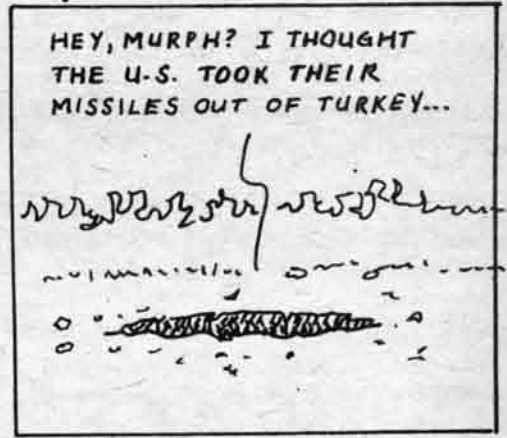 HEY, MURPH? I THOUGHT
THE U.S. TOOK THEIR
MISSILES OUT OF TURKEY...